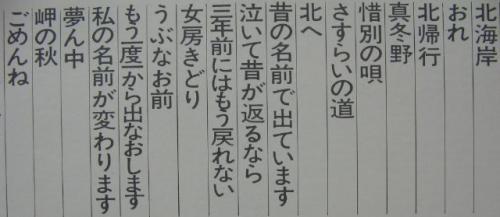 北海岸
おれ
北帰行
真冬野
惜別の唄
さすらいの道
北へ
昔の名前で出ています
泣いて昔が返るなら
三年前にはもう戻れない
女房きどり
うぶなお前
もう一度から出なおします
私の名前が変わります
夢ん中
岬の秋
ごめんね